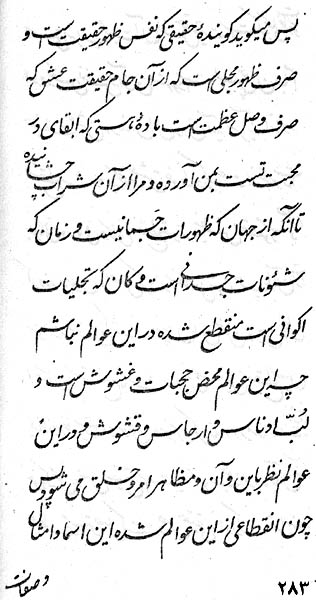 پس میگوید گوینده حقیقی که نفس ظهور حقیقت است و
صرف ظهور مجلی است که از آن جام حقیقت عشق که
صرف وصل عظمت است باده هستی که ابقای در
محبت تست بمن آورده و مرا از آن شراب چشانیده
تا آنکه از جهان که ظهورات جسمانیست و زمان که
شئونات جسدانی است و کان که تجلیات
اکوانی است منقطع شده در این عوالم نباشم
چه این عوالم محض حجبات و غشوش است و
لب ادناس و ارجاس و قشوش و در این
عوالم نظر باین و آن و مظاهر امر و خلق می شود پس
چون انقطاعی از این عوالم شده این اسما و امثال
و صفات
۲۸۳